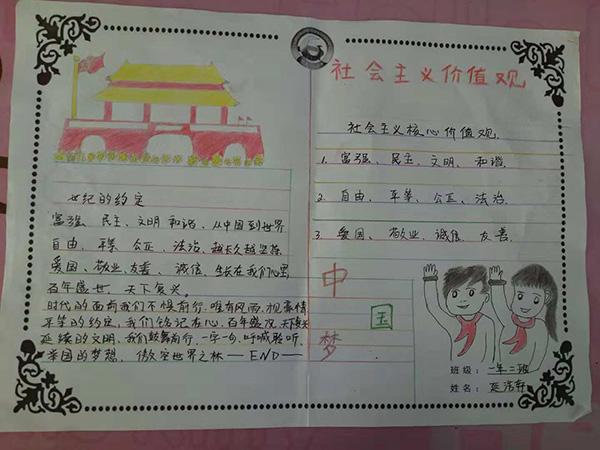 社会主义价值观
社会主义核心价值观
1. 富强、民主、文明、和谐.
2. 自由、平等、公正、法治.
3. 爱国、敬业、诚信、友善.
世纪的约定
富强、民主、文明 和谐、从中国到世界
自由、平等、公正、法治、越长久越坚强
爱国、敬业、友善、诚信、生长在我们心里
百年盛世、天下复兴
时代的面前我们不惧前行、唯有风雨、
平等的约定、我们铭记在心、百年盛况、天下复兴
延续的文明、我们鼓舞前行、一字一句、呼喊聆听、
举国的梦想、傲立世界之林—END—
中
国
梦
班级：一年二班
姓名：